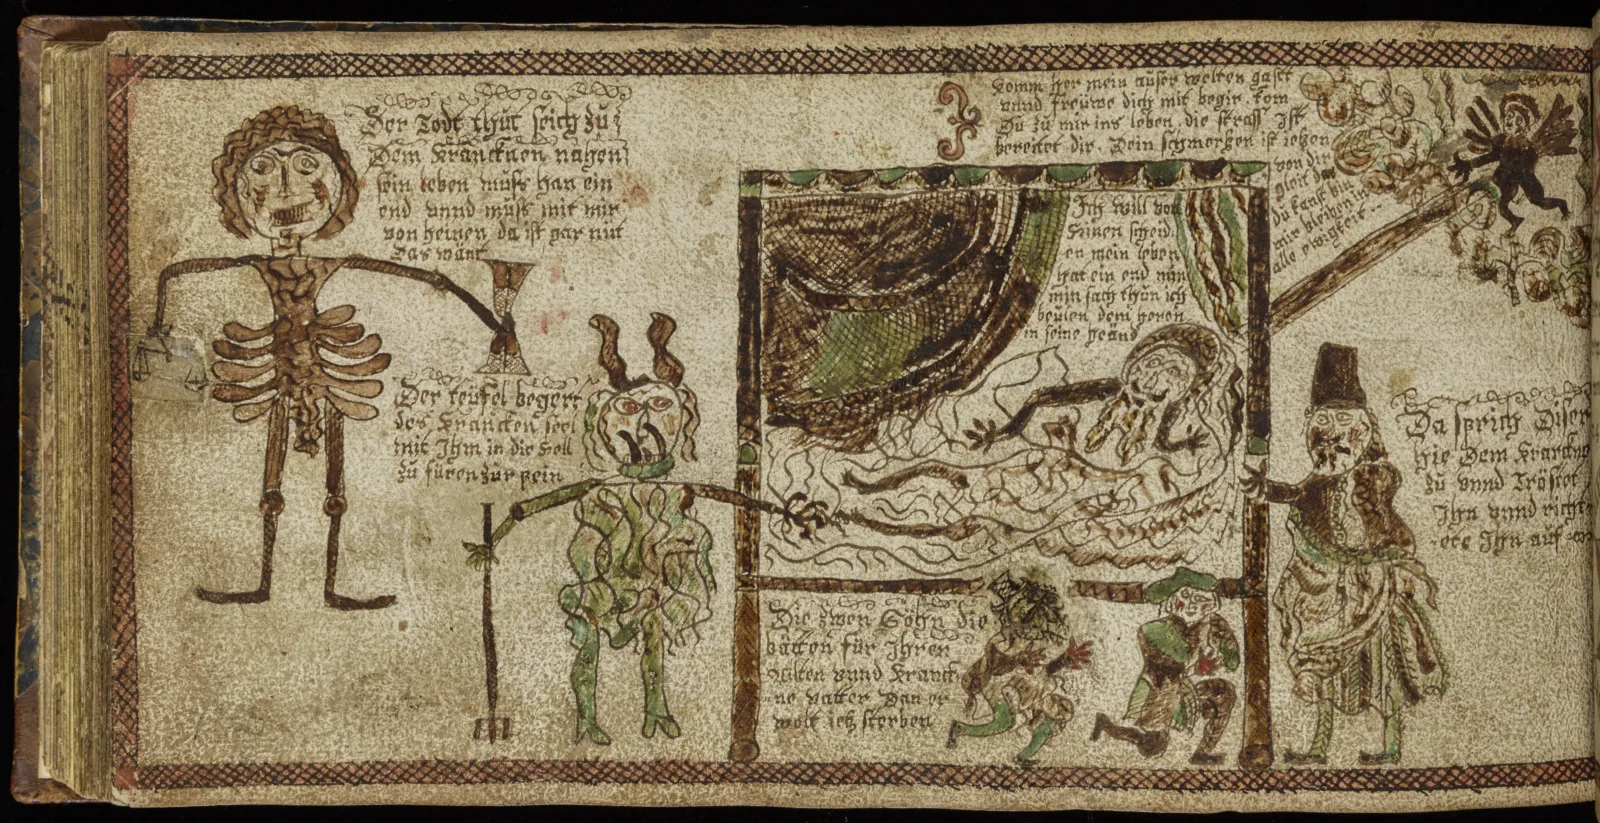 Der Todt thut sich zu
Dem Krancknen nahen
sein leben muss han ein
end vnnd muss mit mir
von heinen da ist gar nut
das wänt
Der teufel begert
des Krancken seel
mit Ihm in die Hell
zu füren zur pein
Komm her mein auser welten gast
vnnd freuwe dich mit begir. kom
Du zu mir ins leben. die strass Ist
bereitet dir. Dein schmertzen ist ietzen
von dir
gleit der
du kanst bin
mir bleiben in
alle ewigkeit
Ich will von
hinen scheid
en mein leben
hat ein end nun
min sach thun ich
beulen dem heren
in seine heänd
Die zwen Söhn die
bätten für Ihren
alten vnnd Kranck
ne vatter Dan er
wolt ietz sterben
Da sprich Diser
hie Dem Krancknen
zu vnnd Tröstet
Ihn vnnd richt
ete Ihn auf